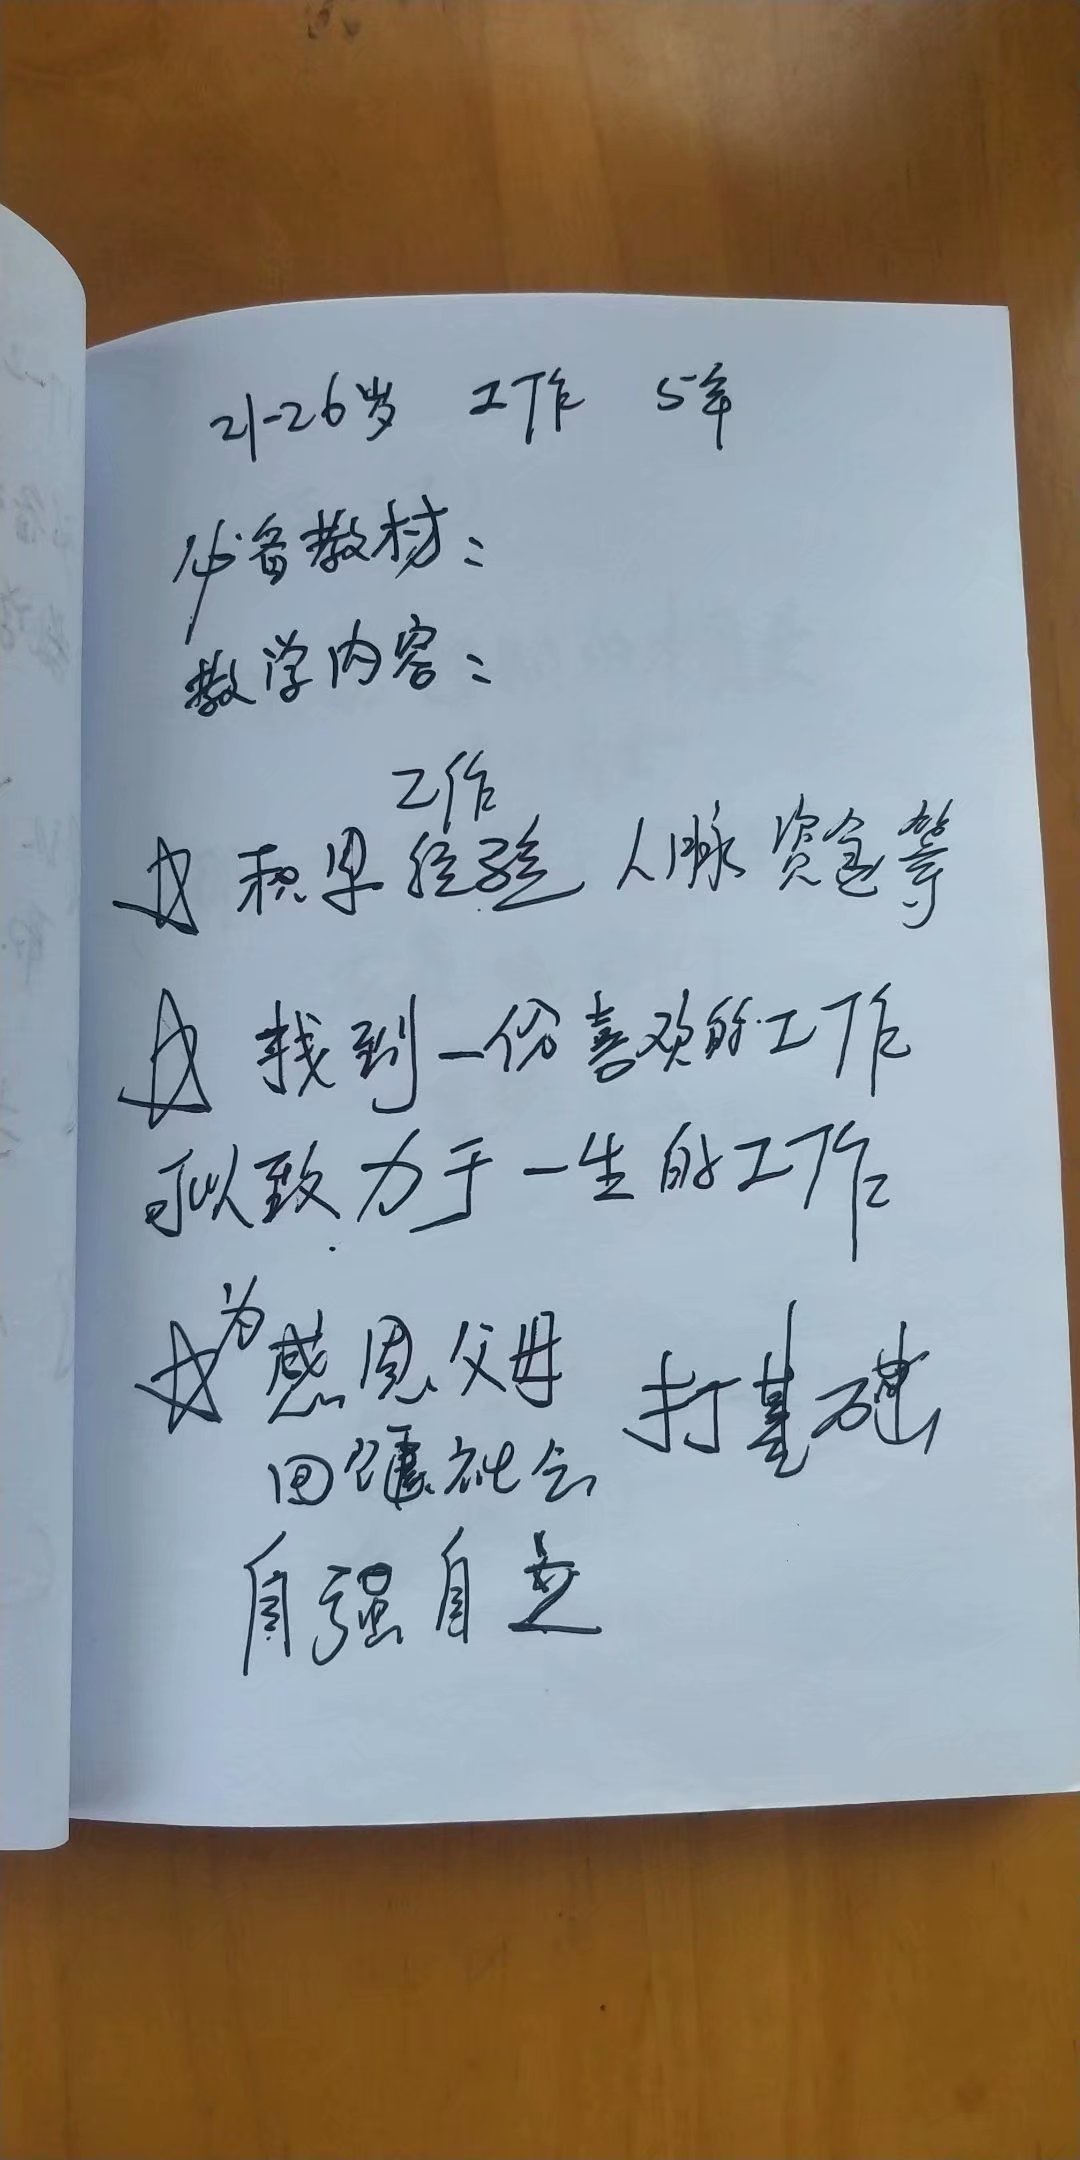 21-26岁 工作 5年
必备教材：
教学内容：
工作
☆ 积累经验 人脉 资金等
☆ 找到一份喜欢的工作
可以致力于一生的工作
为
☆ 感恩父母 打基础
回馈社会
自强自立